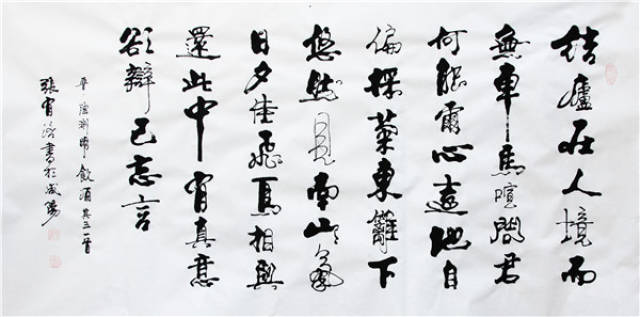 結廬在人境而
無車馬喧問君
何能爾心遠地自
偏採菊東籬下
悠然見南山〻氣
日夕佳飛鳥相與
還此中有真意
欲辯已忘言
淵明飲酒其一首
張書於咸陽